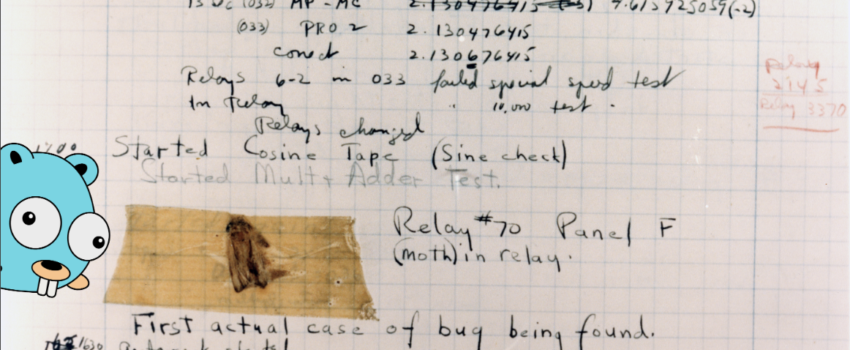 2.130476415
(033) PRO 2 2.130476415
conect 2.130676415
Relays 6-2 in 033 failed special speed test
In Relay " 10,000 test .
Relays changed
Started Cosine Tape (Sine check)
Started Mult + Adder Test.
Relay #70 Panel F
(moth) in relay.
First actual case of bug being found.
Relay
2145
Relay 3370